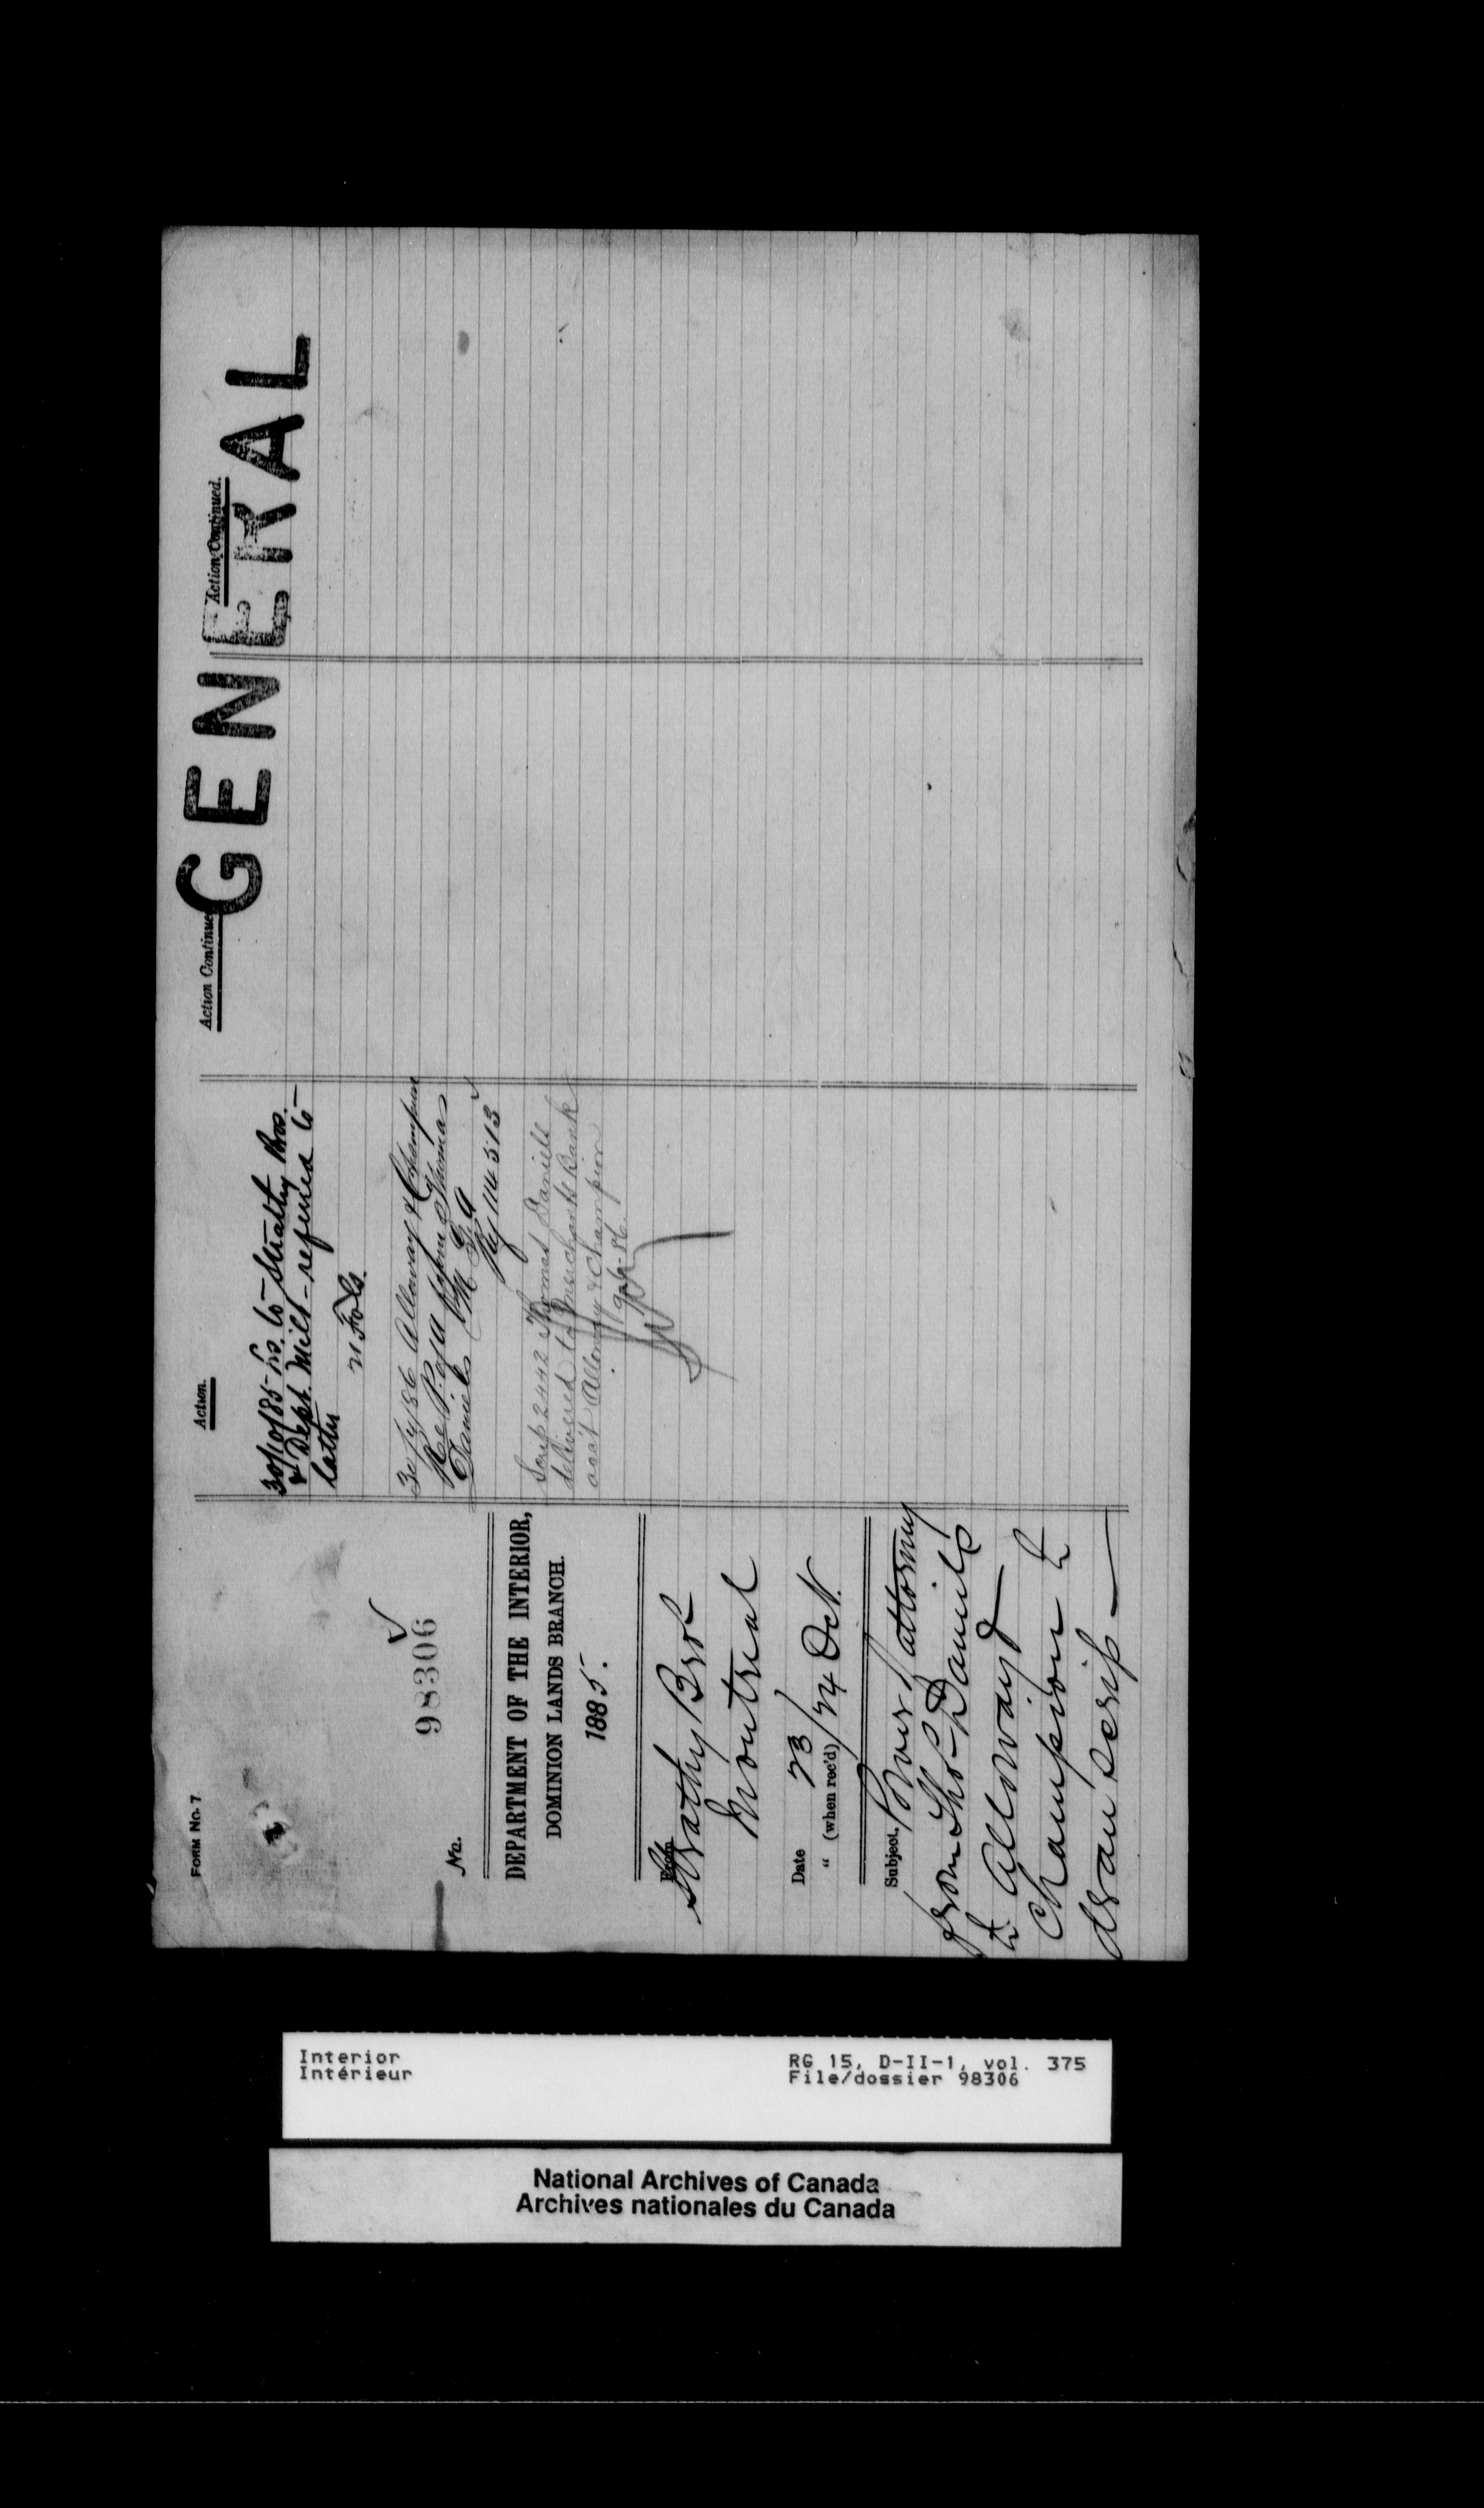 FORM No. 7
98306 ✓
No.
DEPARTMENT OF THE INTERIOR,
DOMINION LANDS BRANCH.
1885.
From
Strathy Bros
Montreal
Date 23
" (when rec'd) / 24 Oct.
Subject, Power attorney
from Thos Daniels
to Alloway &
Champion to
draw scrip —
Action.
30/10/85 to Strathy Bros.
& Dept. Milt - referred to
latter
21 Fols.
30/7/86 Alloway & Champion
Re P. of A from Thomas
Daniels
114513 ✓
Scrip 2442 Thomas Daniels
delivered to Merchants Bank
acc't Alloway & Champion
Action Continue
GENERAL
Action Continued.
Interior
Intérieur
RG 15, D-II-1, vol. 375
File/dossier 98306
National Archives of Canada
Archives nationales du Canada